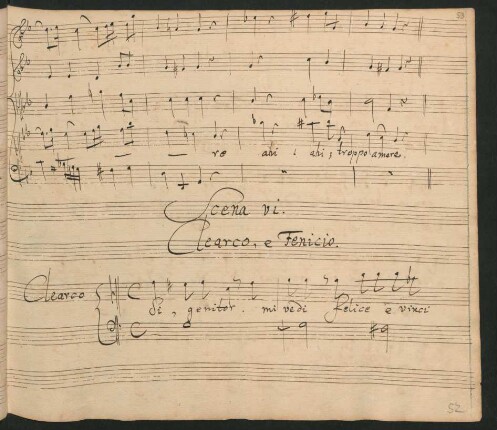 53
re ahi; ahi; troppo amore.
Scena VI.
Clearco, e Fenicio.
Clearco
Si, genitor. mi vedi felice e vinci
52